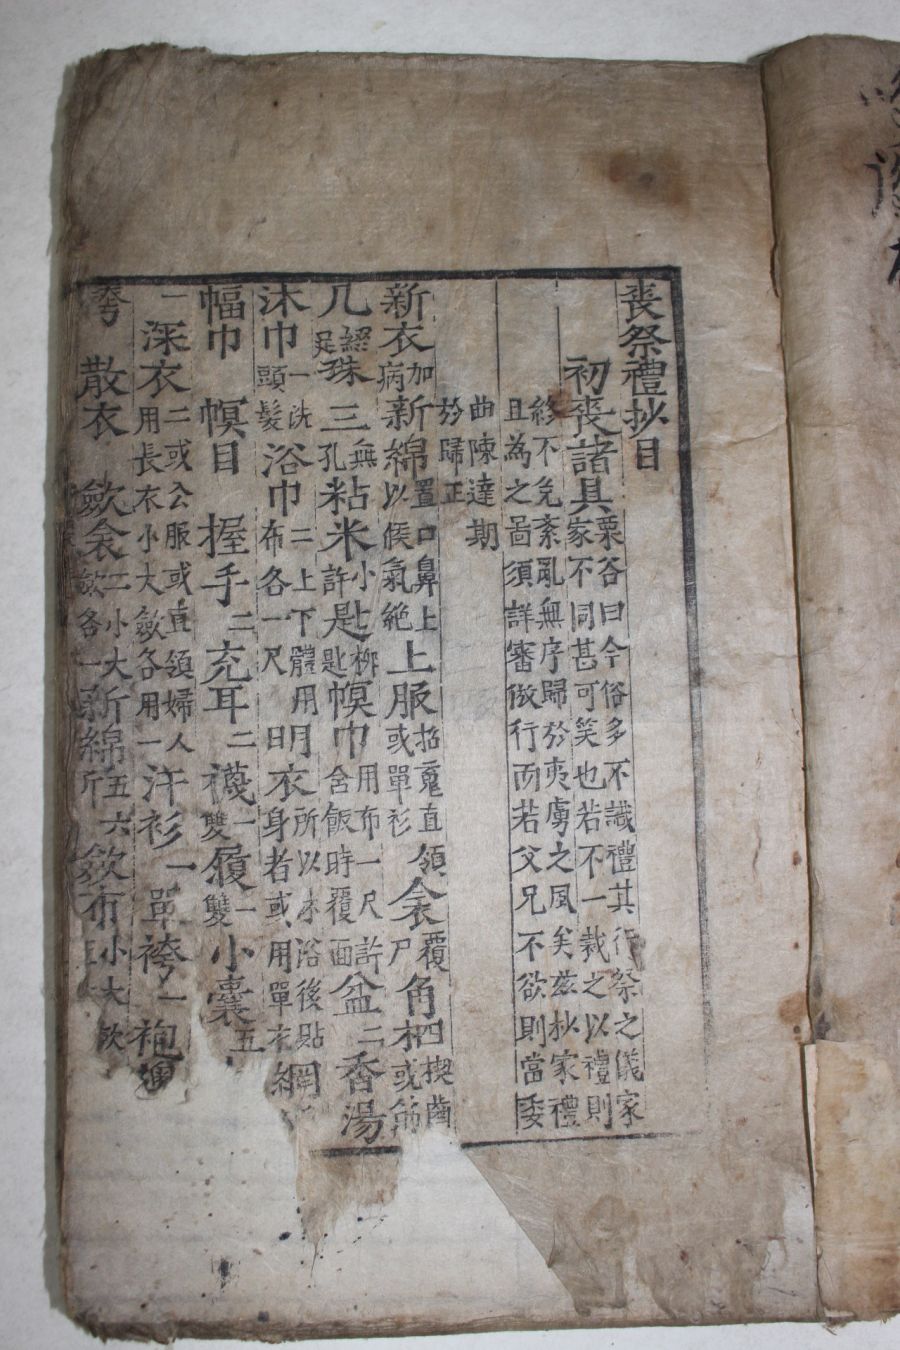 喪祭禮抄目
初喪諸具
栗谷曰今俗多不識禮其行祭之儀家
家不同甚可笑也若不一裁之以禮則
終不免紊亂無序歸於夷虜之風矣玆抄家禮
且為之啚須詳審倣行而若父兄不欲則當委
曲陳達期
於歸正
新衣加病新綿置口鼻上以候氣絶上服招䰟直領或單衫衾覆尸角柶四楔齒或筯
几綴足珠三無孔粘米小許匙柳匙幎巾用布一尺許含飯時覆面盆二香湯
沐巾一洗頭髮浴巾二上下體用布各一尺明衣所以沐浴後貼身者或用單衣網
幅巾幎目握手二充耳二襪一雙履一雙小囊五
一深衣二或公服或直領婦人用長衣小大斂各用一汗衫一單袴一袍
散衣斂衾二小大斂各一新綿五六斤斂布小大斂